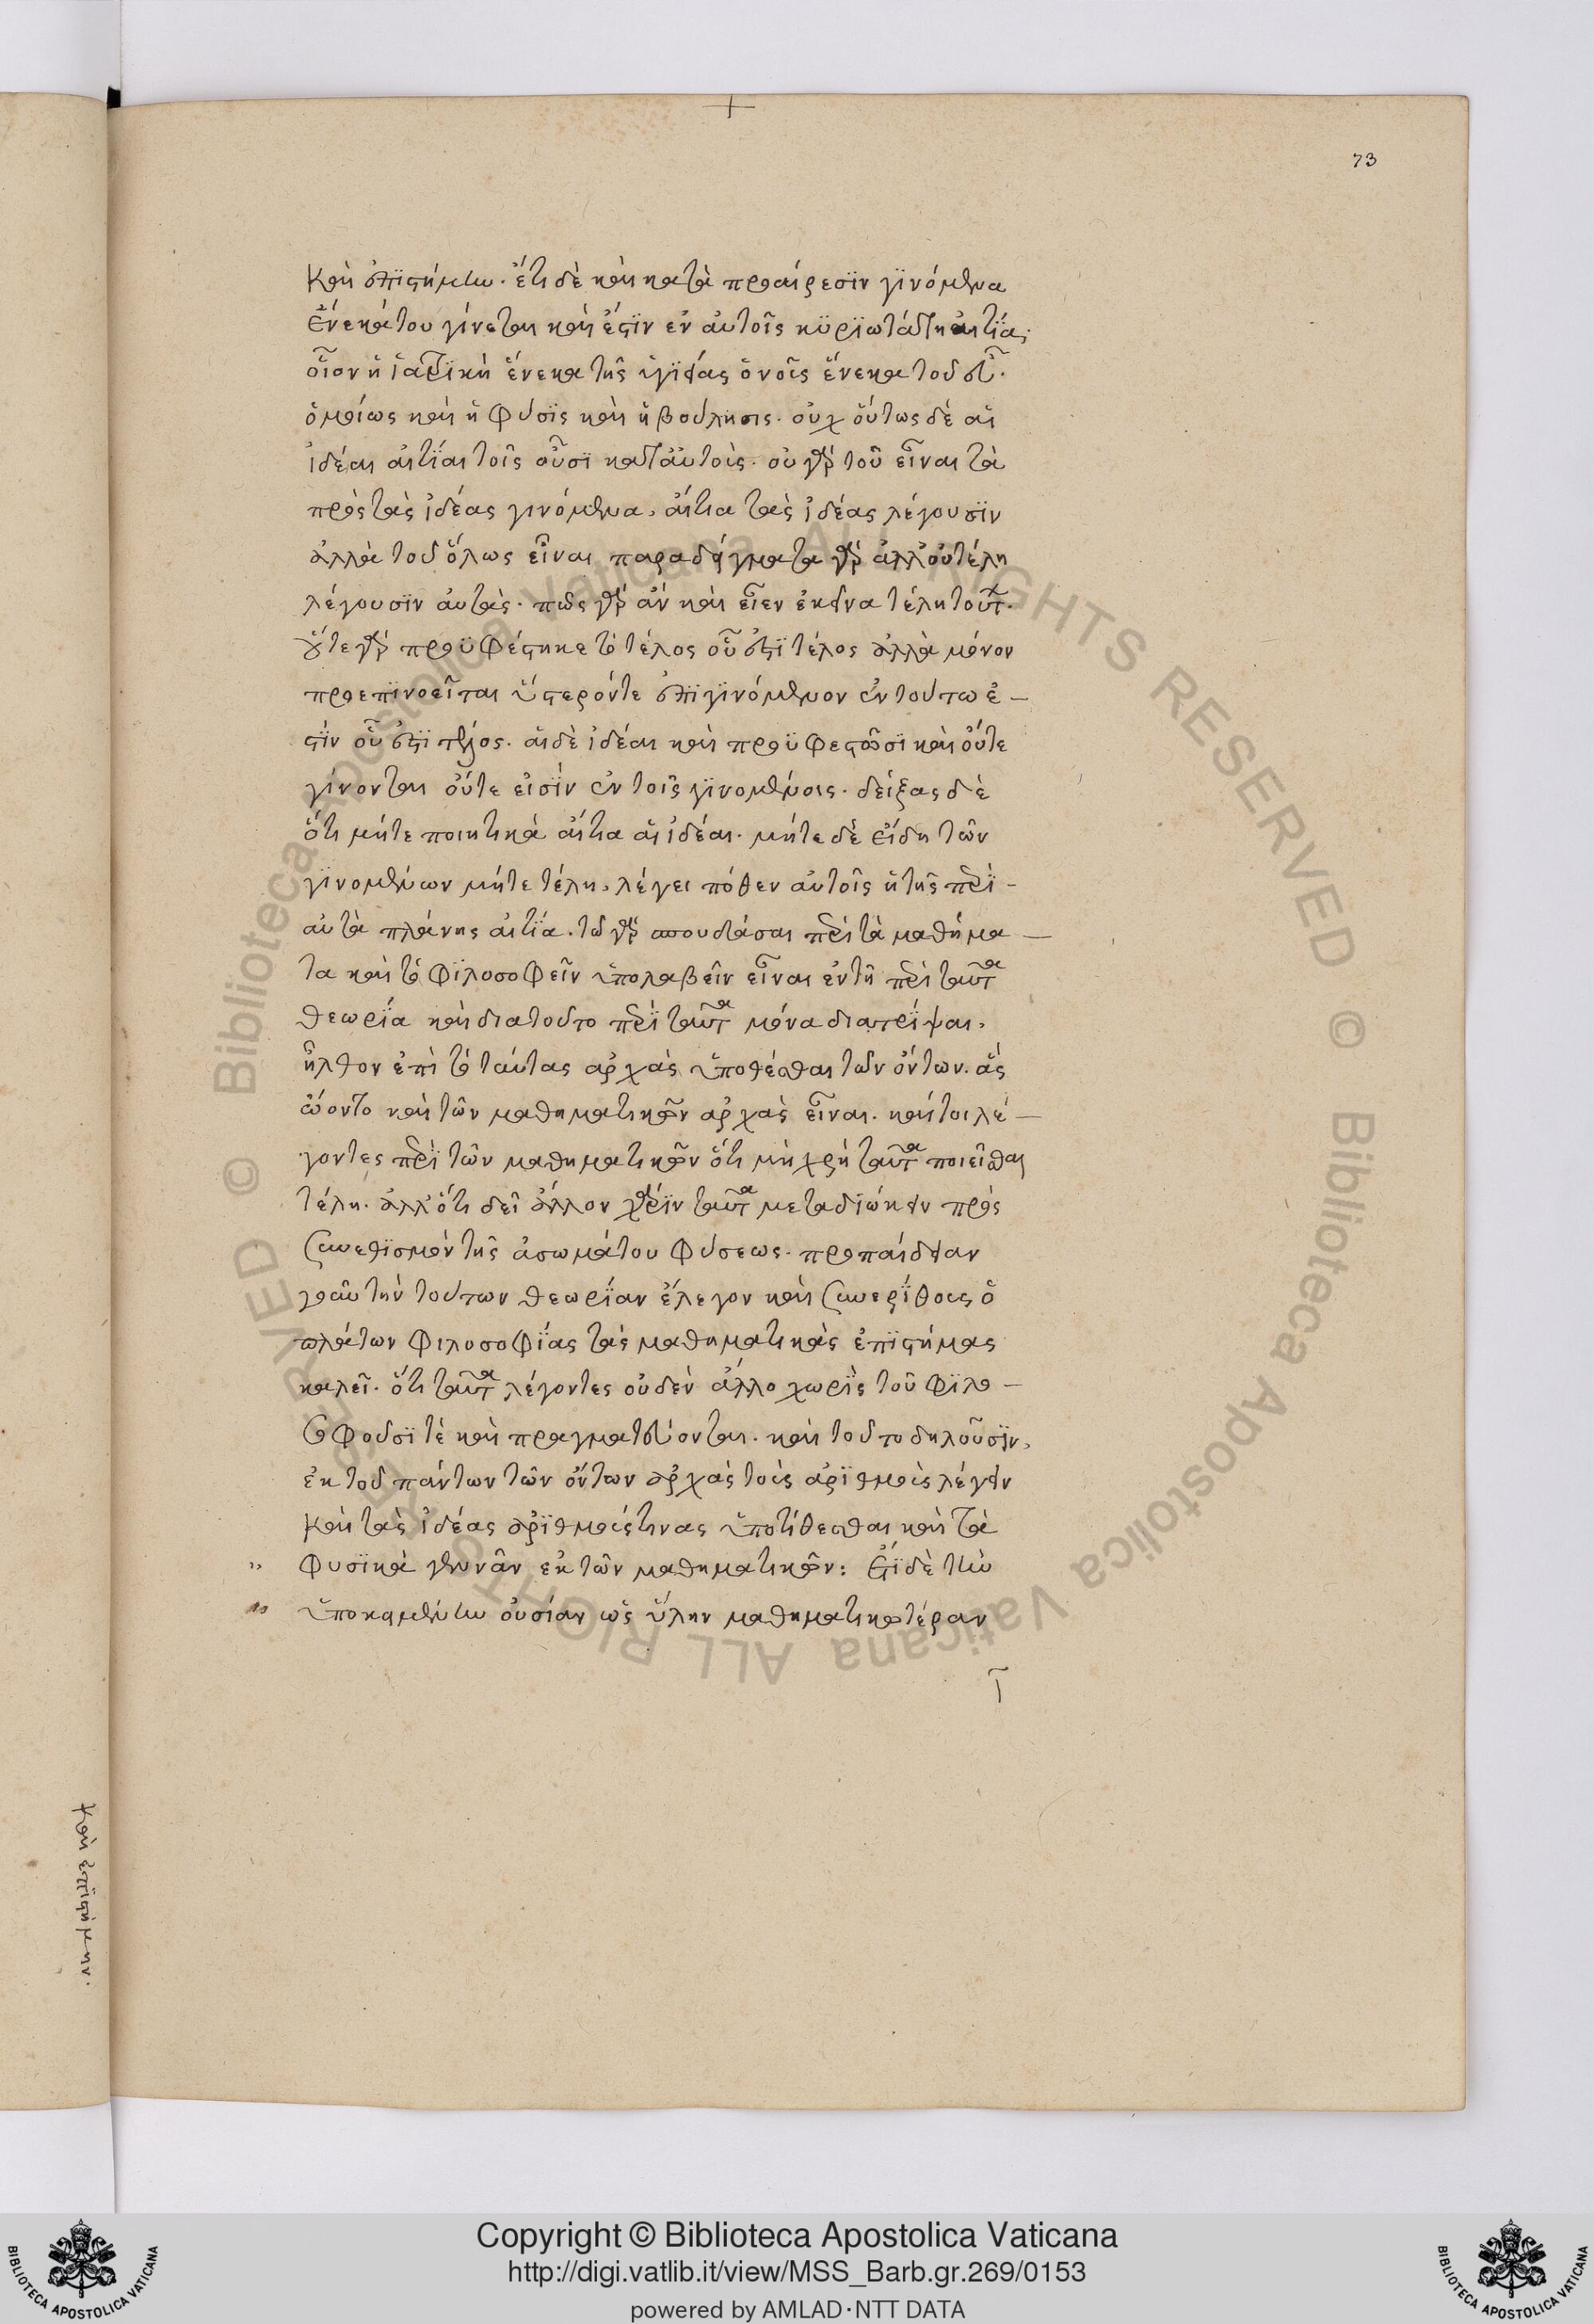 73
καὶ ἐπιστήμην. ἔτι δὲ καὶ κατὰ προαίρεσϊν γϊνόμενα
ἕνεκά του γίνεται καὶ ἔστϊν ἐν αὐτοῖς κϋρϊωτάτη αἰτΐα.
οἷον ἡ ἰατρϊκὴ ἕνεκα τῆς ὑγϊείας ὁ νοῦς ἕνεκα τοῦ
ὁμοίως καὶ ἡ φύσϊς καὶ ἡ βούλησις. οὐχ οὕτως δὲ αἱ
ἰδέαι αἰτΐαι τοῖς οὖσϊ κατ' αὐτοὺς. οὐ γὰρ τοῦ εἶναι τὰ
πρὸς τὰς ἰδέας γινόμενα, αἴτια τὰς ἰδέας λέγουσϊν
ἀλλὰ τοῦ ὅλως εἶναι παραδείγματα γὰρ ἀλλ' οὐ τέλη
λέγουσϊν αὐτάς. πῶς γὰρ ἂν καὶ εἶεν ἐκεῖνα τέλη τούτ.
οὔτε γὰρ προϋφέστηκε τὸ τέλος οὗ ἐστϊ τέλος ἀλλὰ μόνον
προεπϊνοεῖται ὕστερόν τε ἐπϊγϊνόμενον ἐν τούτω ἐ-
στϊν οὗ ἐστϊ τέλος. αἱ δὲ ἰδέαι καὶ προϋφεστῶσϊ καὶ οὔτε
γίνονται οὔτε εἰσϊν ἐν τοῖς γϊνομένοις. δείξας δὲ
ὅτι μήτε ποιητικὰ αἴτια αἱ ἰδέαι. μήτε δὲ εἴδη τῶν
γϊνομένων μήτε τέλη, λέγει πόθεν αὐτοῖς ἡ τῆς περὶ-
αὐτὰ πλάνης αἰτΐα. τῶ γὰρ σπουδάσαι περὶ τὰ μαθήμα-
τα καὶ τὸ φϊλοσοφεῖν ὑπολαβεῖν εἶναι ἐν τῆ περὶ ταῦτα
θεωρΐα καὶ διατοῦτο περὶ ταῦτα μόνα διατρϊψαι,
ἦλθον ἐπὶ τὸ ταύτας ἀρχὰς ὑποθέσθαι τῶν ὄντων. ἃς
ὤοντο καὶ τῶν μαθηματικῶν ἀρχὰς εἶναι. καίτοι λέ-
γοντες περὶ τῶν μαθηματικῶν ὅτι μὴ χρὴ ταῦτα ποιεῖσθαι
τέλη. ἀλλ' ὅτι δεῖ ἄλλον χάρϊν ταῦτα μεταδιώκειν πρὸς
συνεθϊσμὸν τῆς ἀσωμάτου φύσεως. προπαίδειαν
γοῦν τὴν τούτων θεωρΐαν ἔλεγον καὶ συνερΐθους ὁ
πλάτων φιλοσοφΐας τὰς μαθηματικὰς ἐπϊστήμας
καλεῖ. ὅτι ταῦτα λέγοντες οὐδὲν ἄλλο χωρϊς τοῦ φϊλο-
σοφοῦσϊ τὲ καὶ πραγματεύονται. καὶ τοῦτο δηλοῦσϊν,
ἐκ τοῦ πάντων τῶν ὄντων ἀρχὰς τοὺς ἀρϊθμοὺς λέγειν
καὶ τὰς ἰδέας ἀρϊθμούς τινας ὑποτίθεσθαι καὶ τὰ
φυσϊκὰ γεννᾶν ἐκ τῶν μαθηματικῶν: ἔτϊ δὲ τὴν
ὑποκειμένην οὐσίαν ὡς ὕλην μαθηματικωτέραν
καὶ ἐπϊστήμην.
Copyright © Biblioteca Apostolica Vaticana
http://digi.vatlib.it/view/MSS_Barb.gr.269/0153
powered by AMLAD·NTT DATA